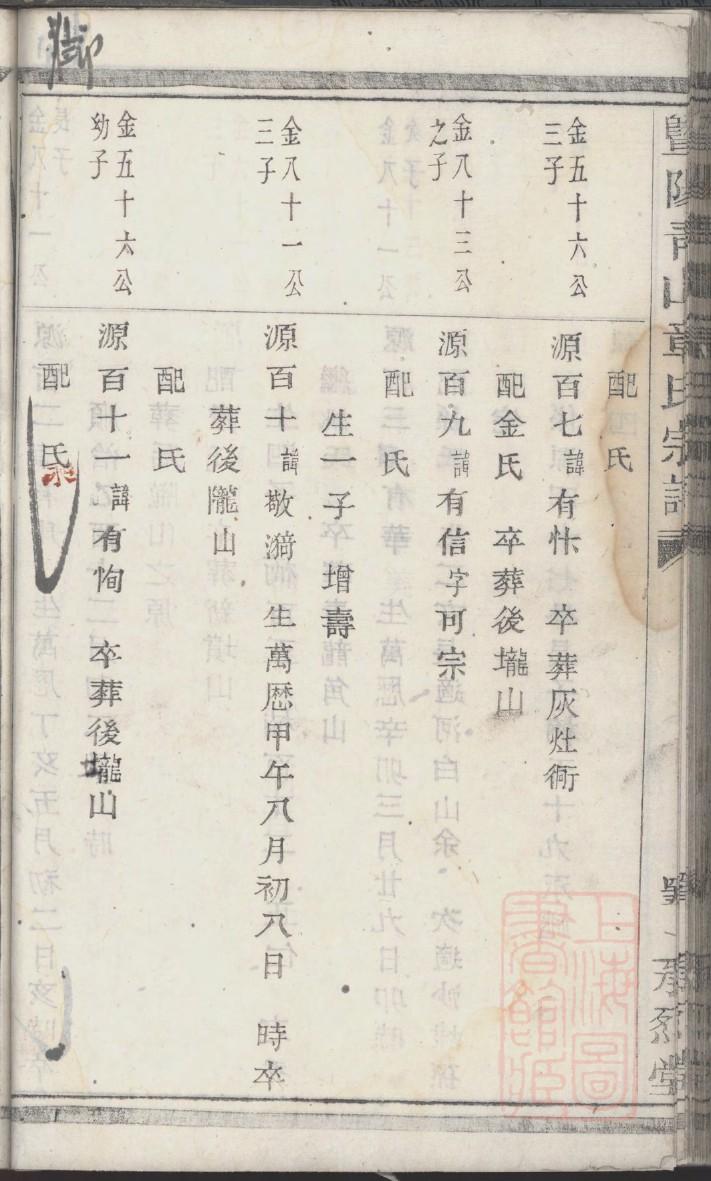 暨陽青山章氏宗譜
承烈堂
配氏
金五十六公
三子
源百七諱有忭 卒葬灰灶衕
配金氏 卒葬後壠山
金八十三公
之子
源百九諱有信字可宗
配氏
生一子增壽
金八十一公
三子
源百十諱敬漪 生萬歷甲午八月初八日 時卒
葬後隴山
配氏
金五十六公
幼子
源百十一諱有恂 卒葬後壠山
配氏
上海圖書館藏